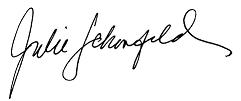 Julie Schonfeld